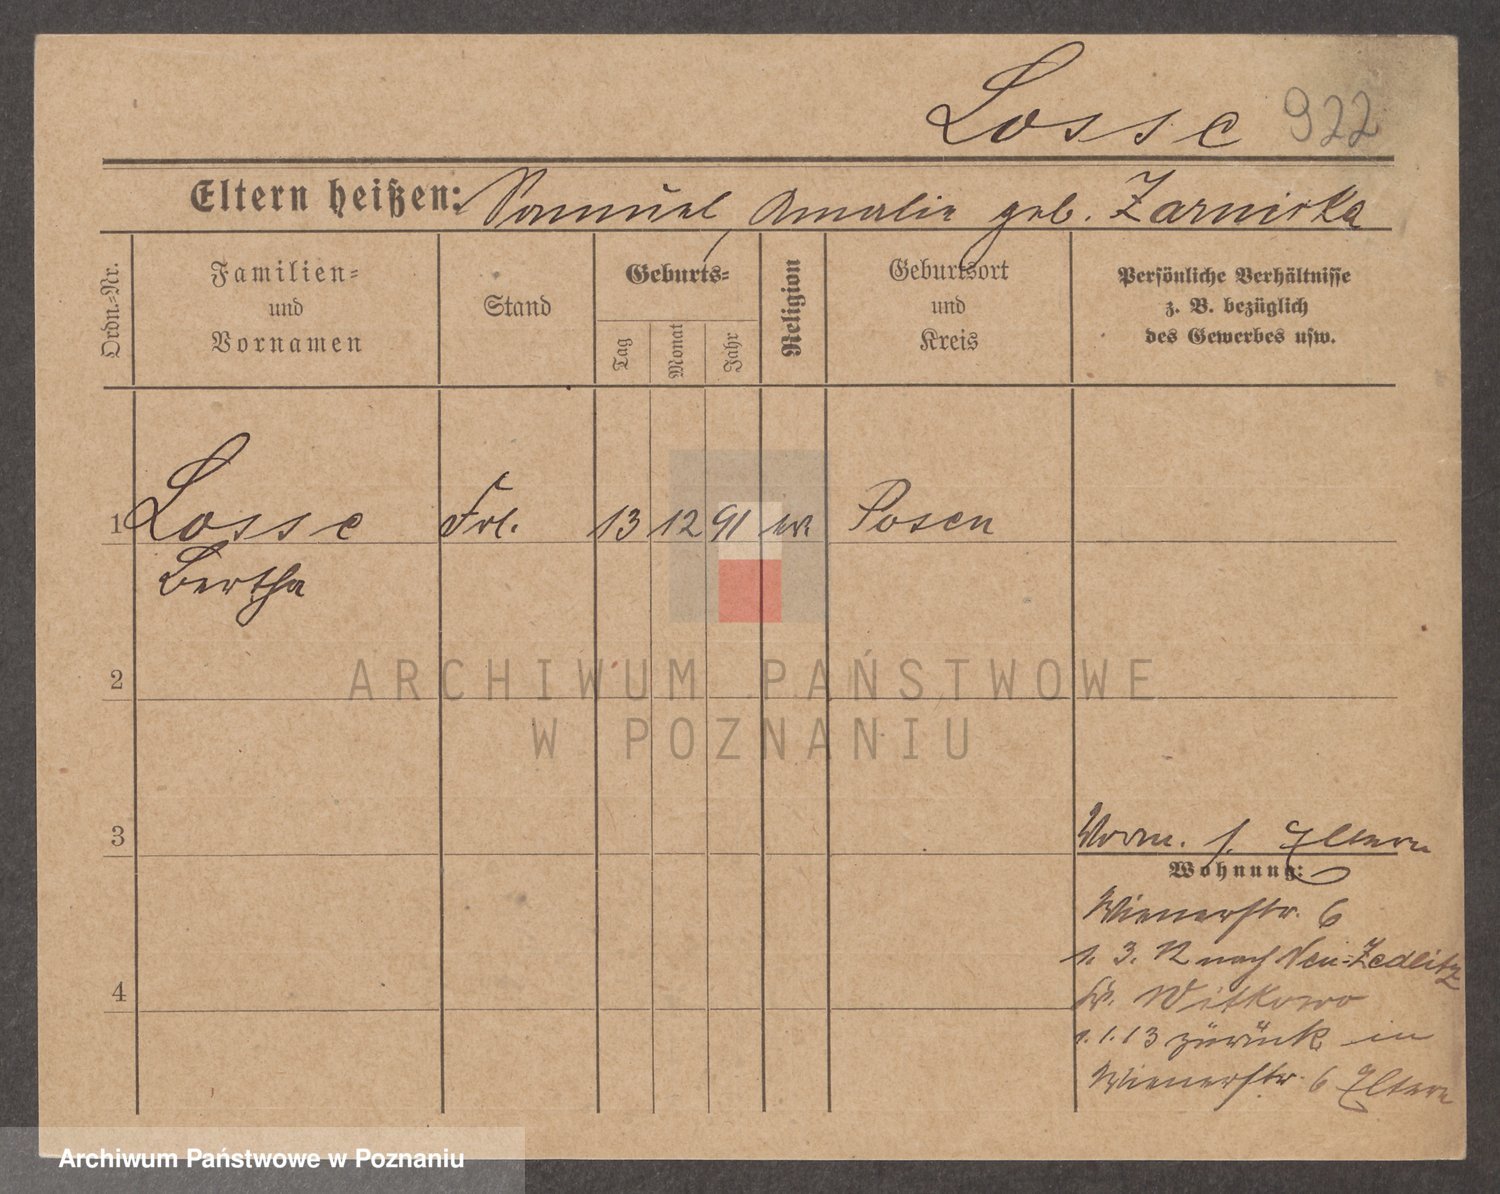 Losse 922
Eltern heißen: Samuel, Amalie geb. Zarnirka
Ordn.-Nr.
Familien-
und
Vornamen
Stand
Geburts-
Tag
Monat
Jahr
Religion
Geburtsort
und
Kreis
Persönliche Verhältnisse
z. B. bezüglich
des Gewerbes usw.
1 Losse Frl. 13 12 91 ev. Posen
Bertha
2
3
4
Vorm. s. Eltern
Wohnung:
Wienerstr. 6
1. 3. 12 nach Neu-Zedlitz
Kr. Witkowo
1.1.13 zurück in
Wienerstr. 6 Eltern
ARCHIWUM PAŃSTWOWE
W POZNANIU
Archiwum Państwowe w Poznaniu